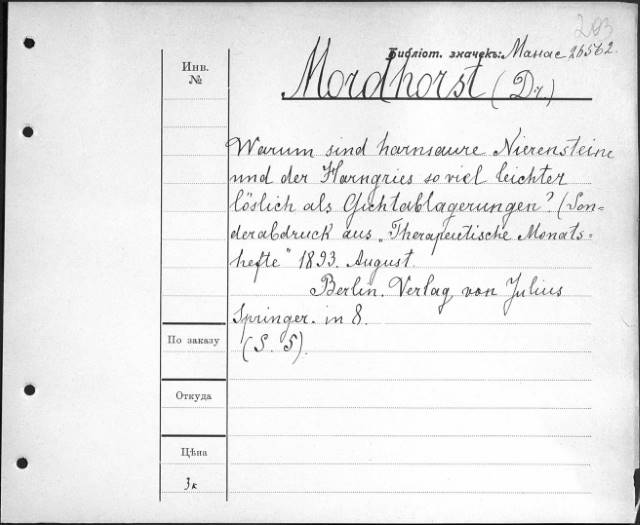 203
Библіот. значекъ: Манас 26562.
Инв.
№
Mordhorst (Dr.)
Warum sind harnsaure Nierensteine
und der Harngries so viel leichter
löslich als Gichtablagerungen? (Son-
derabdruck aus „Therapeutische Monats-
hefte" 1893. August.
Berlin. Verlag von Julius
Springer. in 8.
По заказу
(S. 5).
Откуда
Цѣна
3к